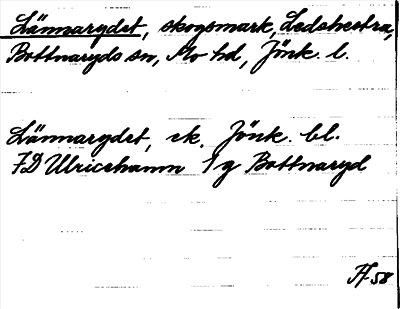 Lännarydet, skogsmark, Ledshestra,
Bottnaryds sn, Mo hd, Jönk. l.
Lännarydet, ek. Jönk. bl.
7D Ulricehamn 1g Bottnaryd
FF 58